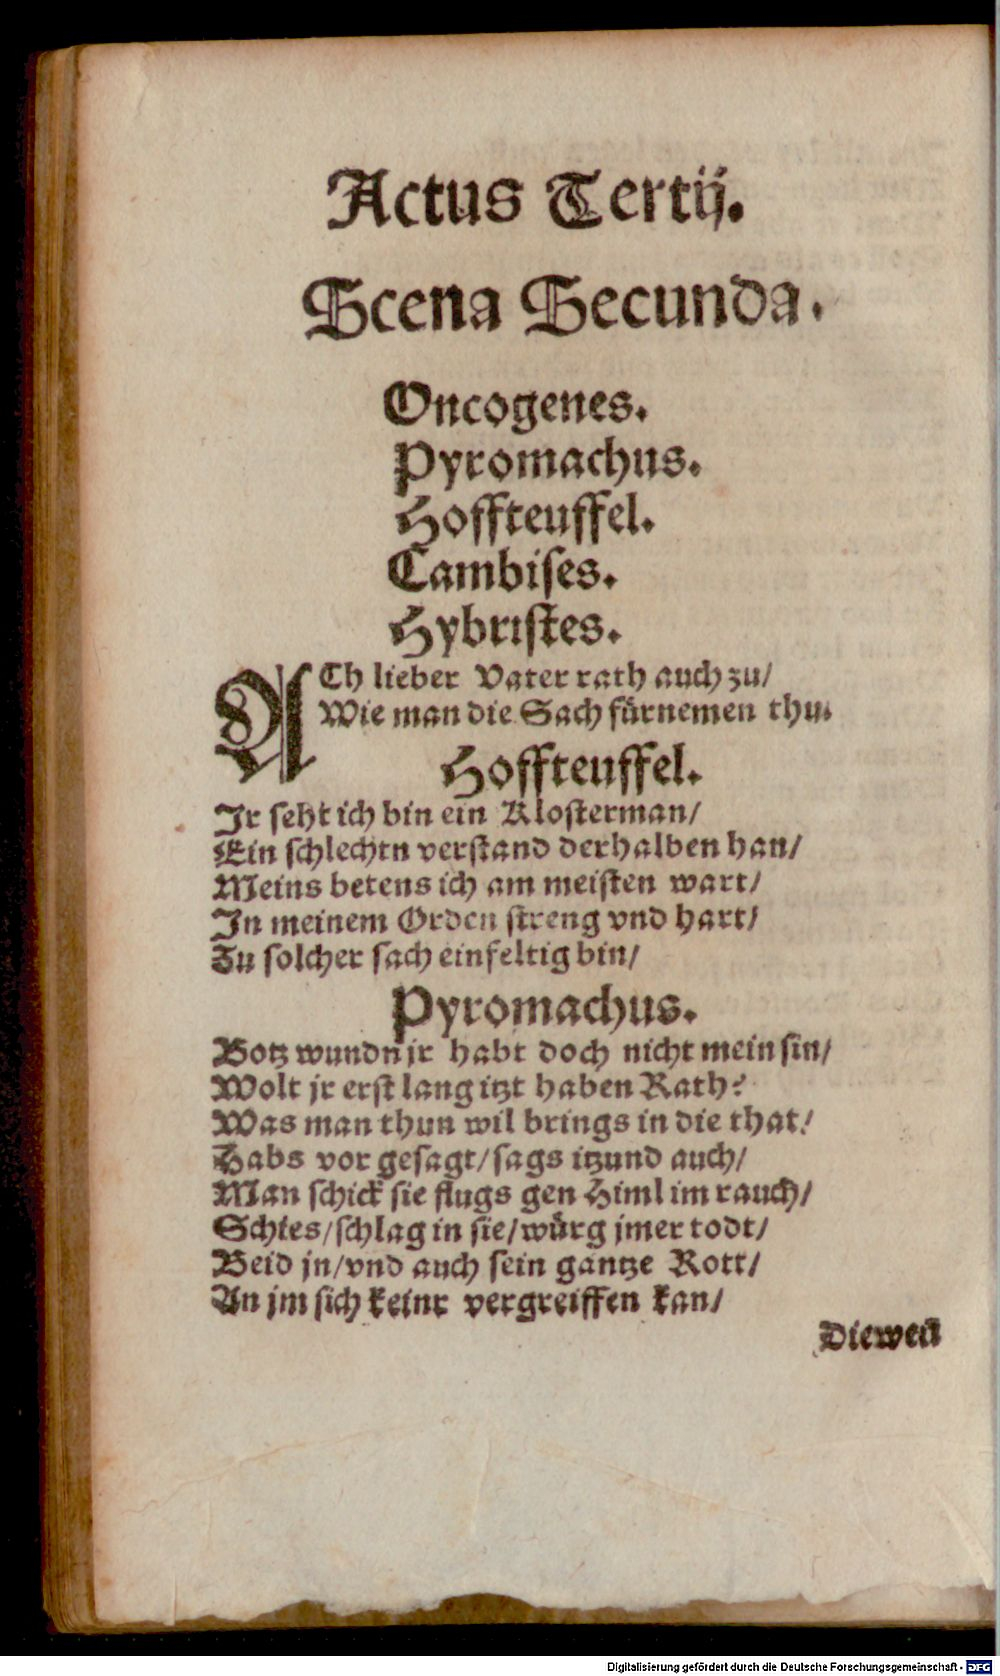 Actus Tertij.
Scena Secunda.
Oncogenes.
Pyromachus.
Hoffteuffel.
Cambiſes.
Hybriſtes.
ACh lieber Vater rath auch zu/
Wie man die Sach fürnemen thu.
Hoffteuffel.
Ir ſeht ich bin ein Kloſterman/
Ein ſchlechtn verſtand derhalben han/
Meins betens ich am meiſten wart/
In meinem Orden ſtreng vnd hart/
Zu ſolcher ſach einfeltig bin/
Pyromachus.
Botz wundn jr habt doch nicht mein ſin/
Wolt jr erſt lang itzt haben Rath?
Was man thun wil brings in die that/
Habs vor geſagt/ſags itzund auch/
Man ſchick ſie flugs gen Himl im rauch/
Schies/ſchlag in ſie/würg jmer todt/
Beid jn/vnd auch ſein gantze Rott/
An jm ſich keinr vergreiffen kan/
Dieweil
Digitalisierung gefördert durch die Deutsche Forschungsgemeinschaft - DFG